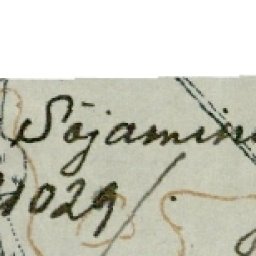 Sõjamini
1029